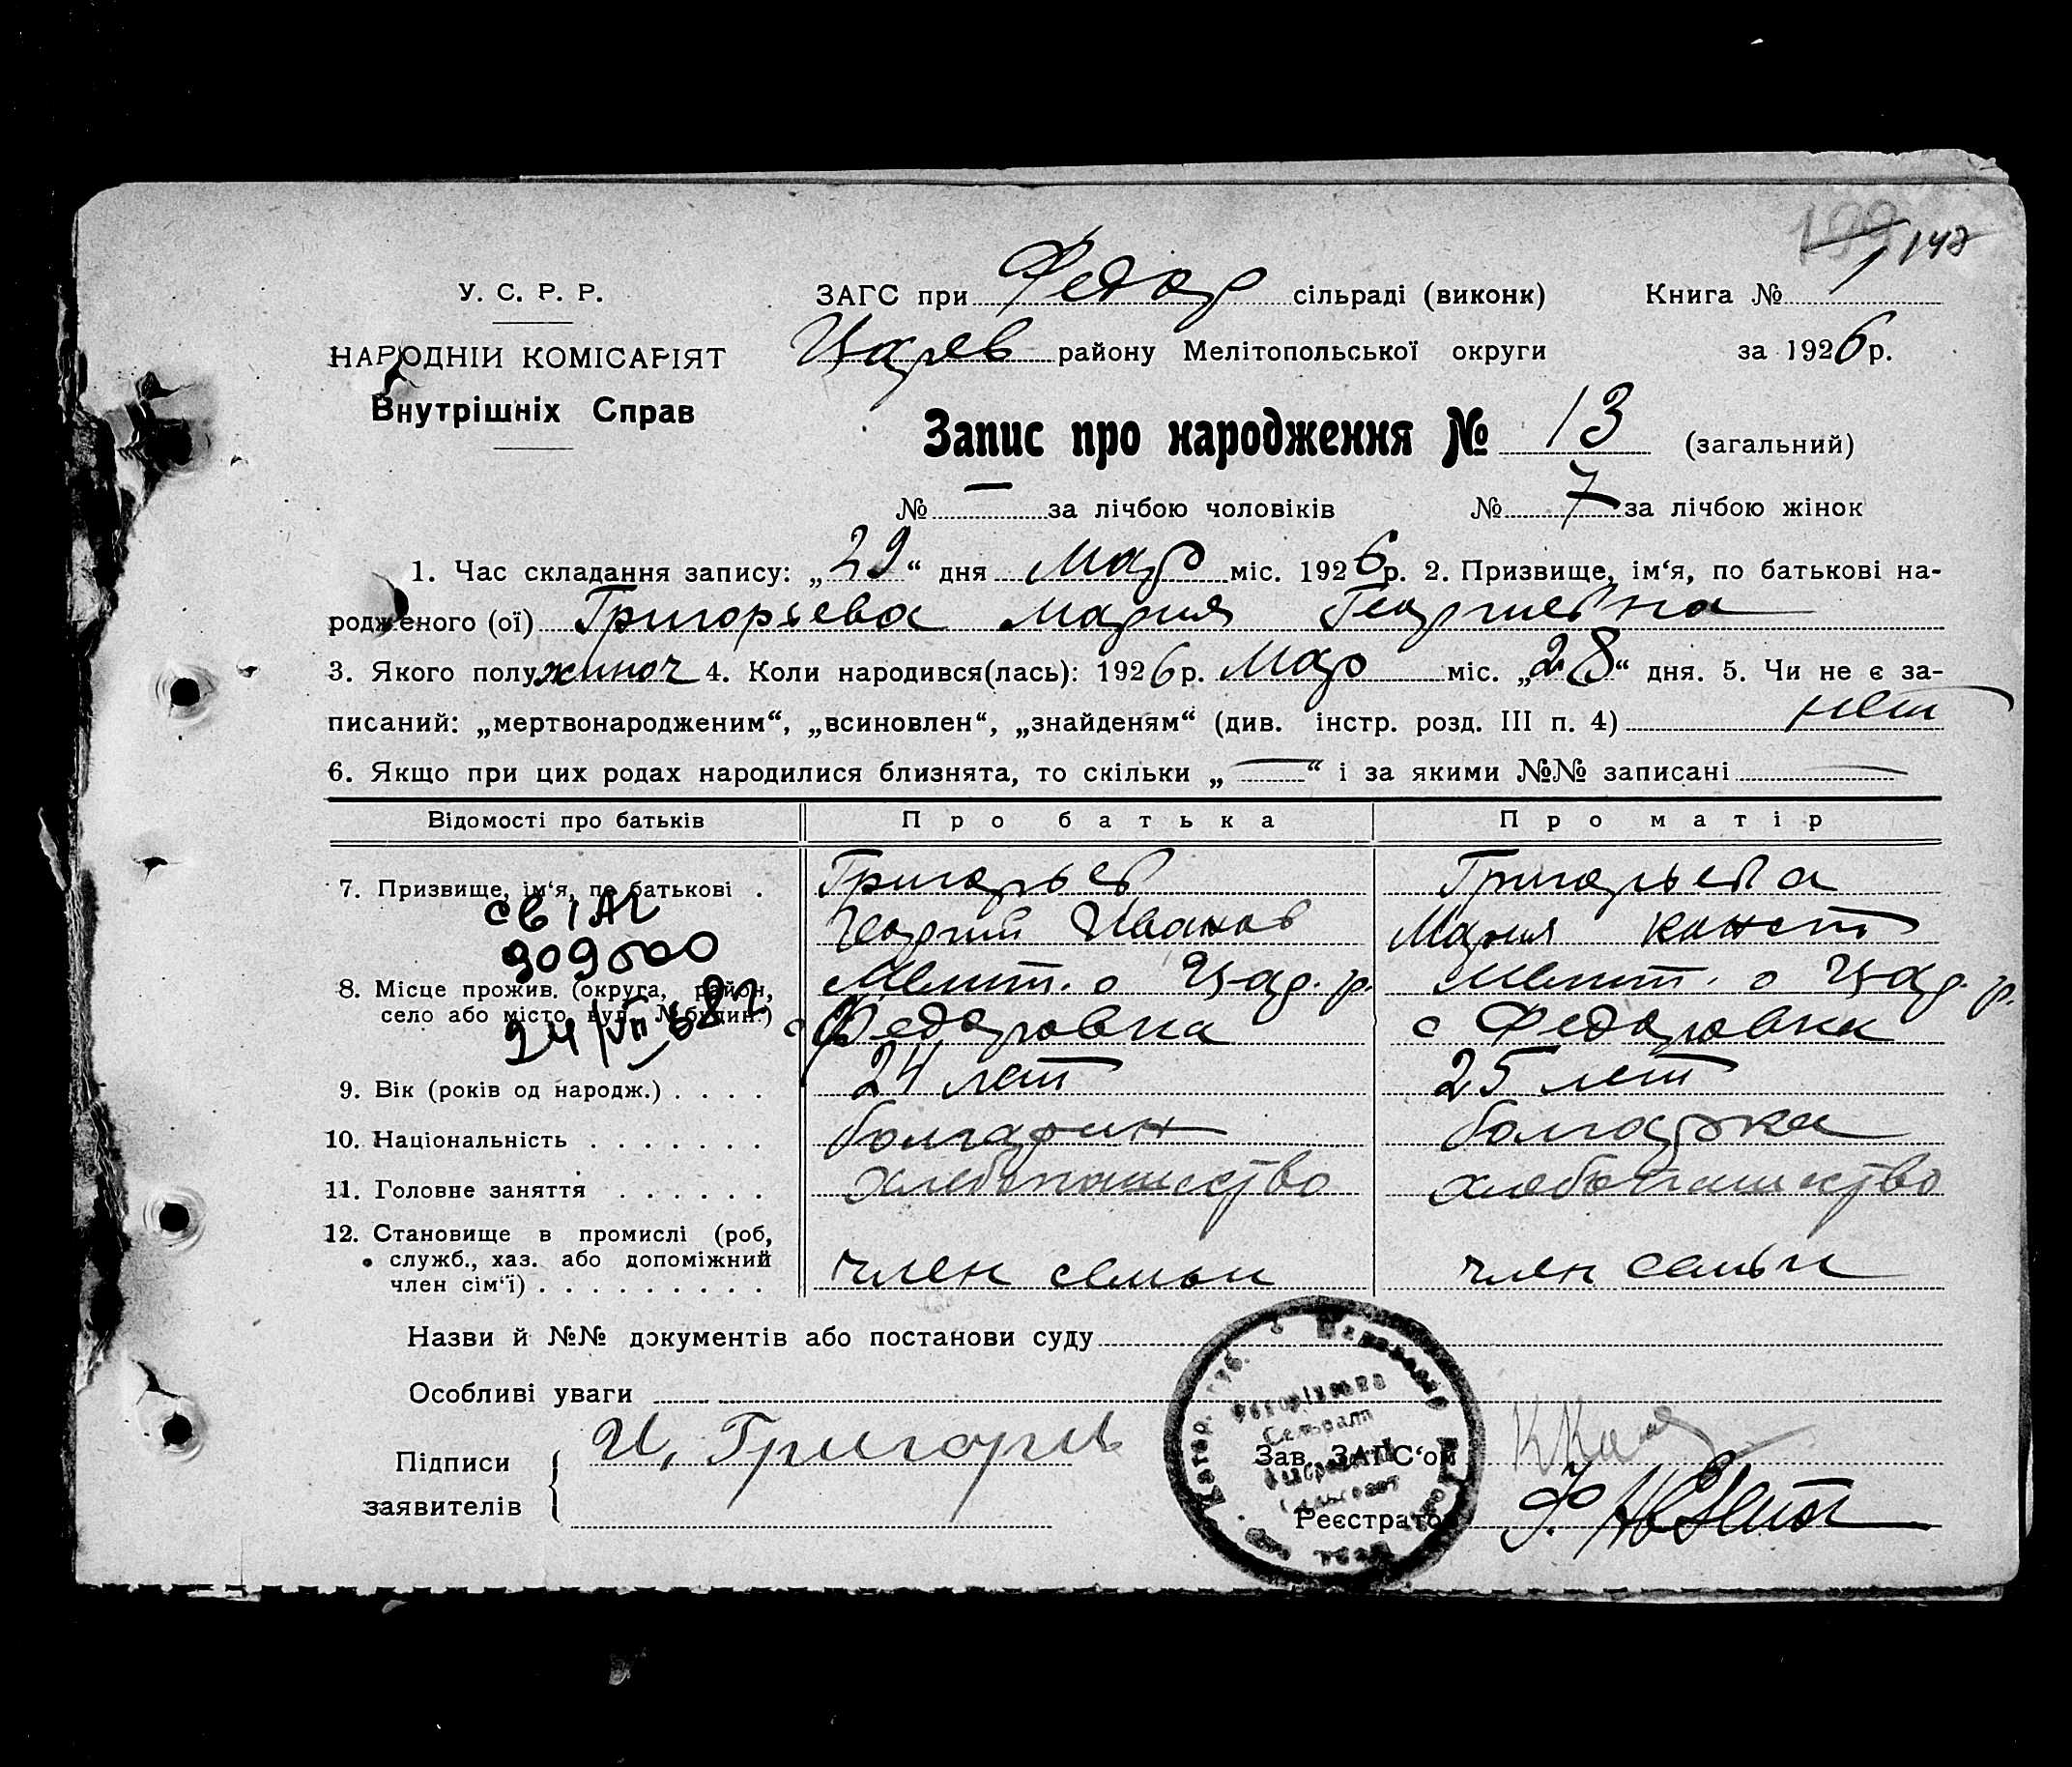 199 147
У. С. Р. Р.
ЗАГС при Федор сільраді (виконк) Книга № 1
НАРОДНІЙ КОМІСАРІЯТ
Царев району Мелітопольської округи за 1926 р.
Внутрішніх Справ
Запис про народження № 13 (загальний)
№ — за лічбою чоловіків № 7 за лічбою жінок
1. Час складання запису: „29“ дня мар міс. 1926 р. 2. Призвище, ім‘я, по батькові на-
родженого (ої) Григорьева Мария Георгиевна
3. Якого полу жиноч 4. Коли народився(лась): 1926 р. мар міс. „28“ дня. 5. Чи не є за-
писаний: „мертвонародженим“, „всиновлен“, „знайденям“ (див. інстр. розд. III п. 4) нет
6. Якщо при цих родах народилися близнята, то скільки „—“ і за якими №№ записані —
Відомості про батьків Про батька Про матір
7. Призвище, ім‘я, по батькові . Григорьев Григорьева
Георгий Иванов Мария Конст
909500
8. Місце прожив. (округа, район, Мелит. о Цар. р. Мелит. о Цар. р.
село або місто, вул., № будин.) с Федоровка с Федоровка
24/VII
9. Вік (років од народж.) . . . . 24 лет 25 лет
10. Національність . . . . . . . болгарин болгарка
11. Головне заняття . . . . . . хлебопашество хлебопашество
12. Становище в промислі (роб,
служб., хаз. або допоміжний
член сім‘ї) . . . . . . . . . член семьи член семьи
Назви й №№ документів або постанови суду
Особливі уваги
Підписи И. Григорьев Зав. ЗАГС‘ом
заявителів Реєстратор